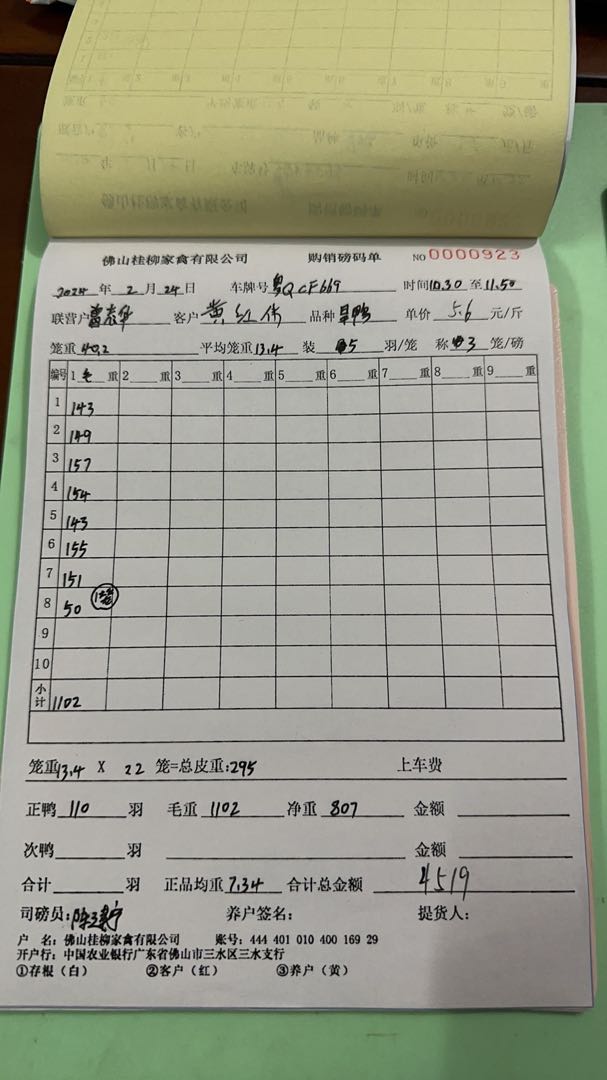 佛山桂柳家禽有限公司 购销磅码单 NO 0000923
2024年 2 月 24日 车牌号 粤QCF669 时间10.30 至11.50
联营户 客户 黄红伟 品种 旱鸭 单价 5.6 元/斤
笼重 40.2 平均笼重13.4 装 5 羽/笼 称 3 笼/磅
编号 1 毛 重 2 重 3 重 4 重 5 重 6 重 7 重 8 重 9 重
1 143
2 149
3 157
4 154
5 143
6 155
7 151
8 50 1笼
9
10
小计 1102
笼重13.4 X 22 笼=总皮重:295 上车费
正鸭 110 羽 毛重 1102 净重 807 金额
次鸭 羽 金额
合计 羽 正品均重 7.34 合计总金额 4519
司磅员: 养户签名: 提货人:
户 名:佛山桂柳家禽有限公司 账号:444 401 010 400 169 29
开户行:中国农业银行广东省佛山市三水区三水支行
①存根(白) ②客户(红) ③养户(黄)